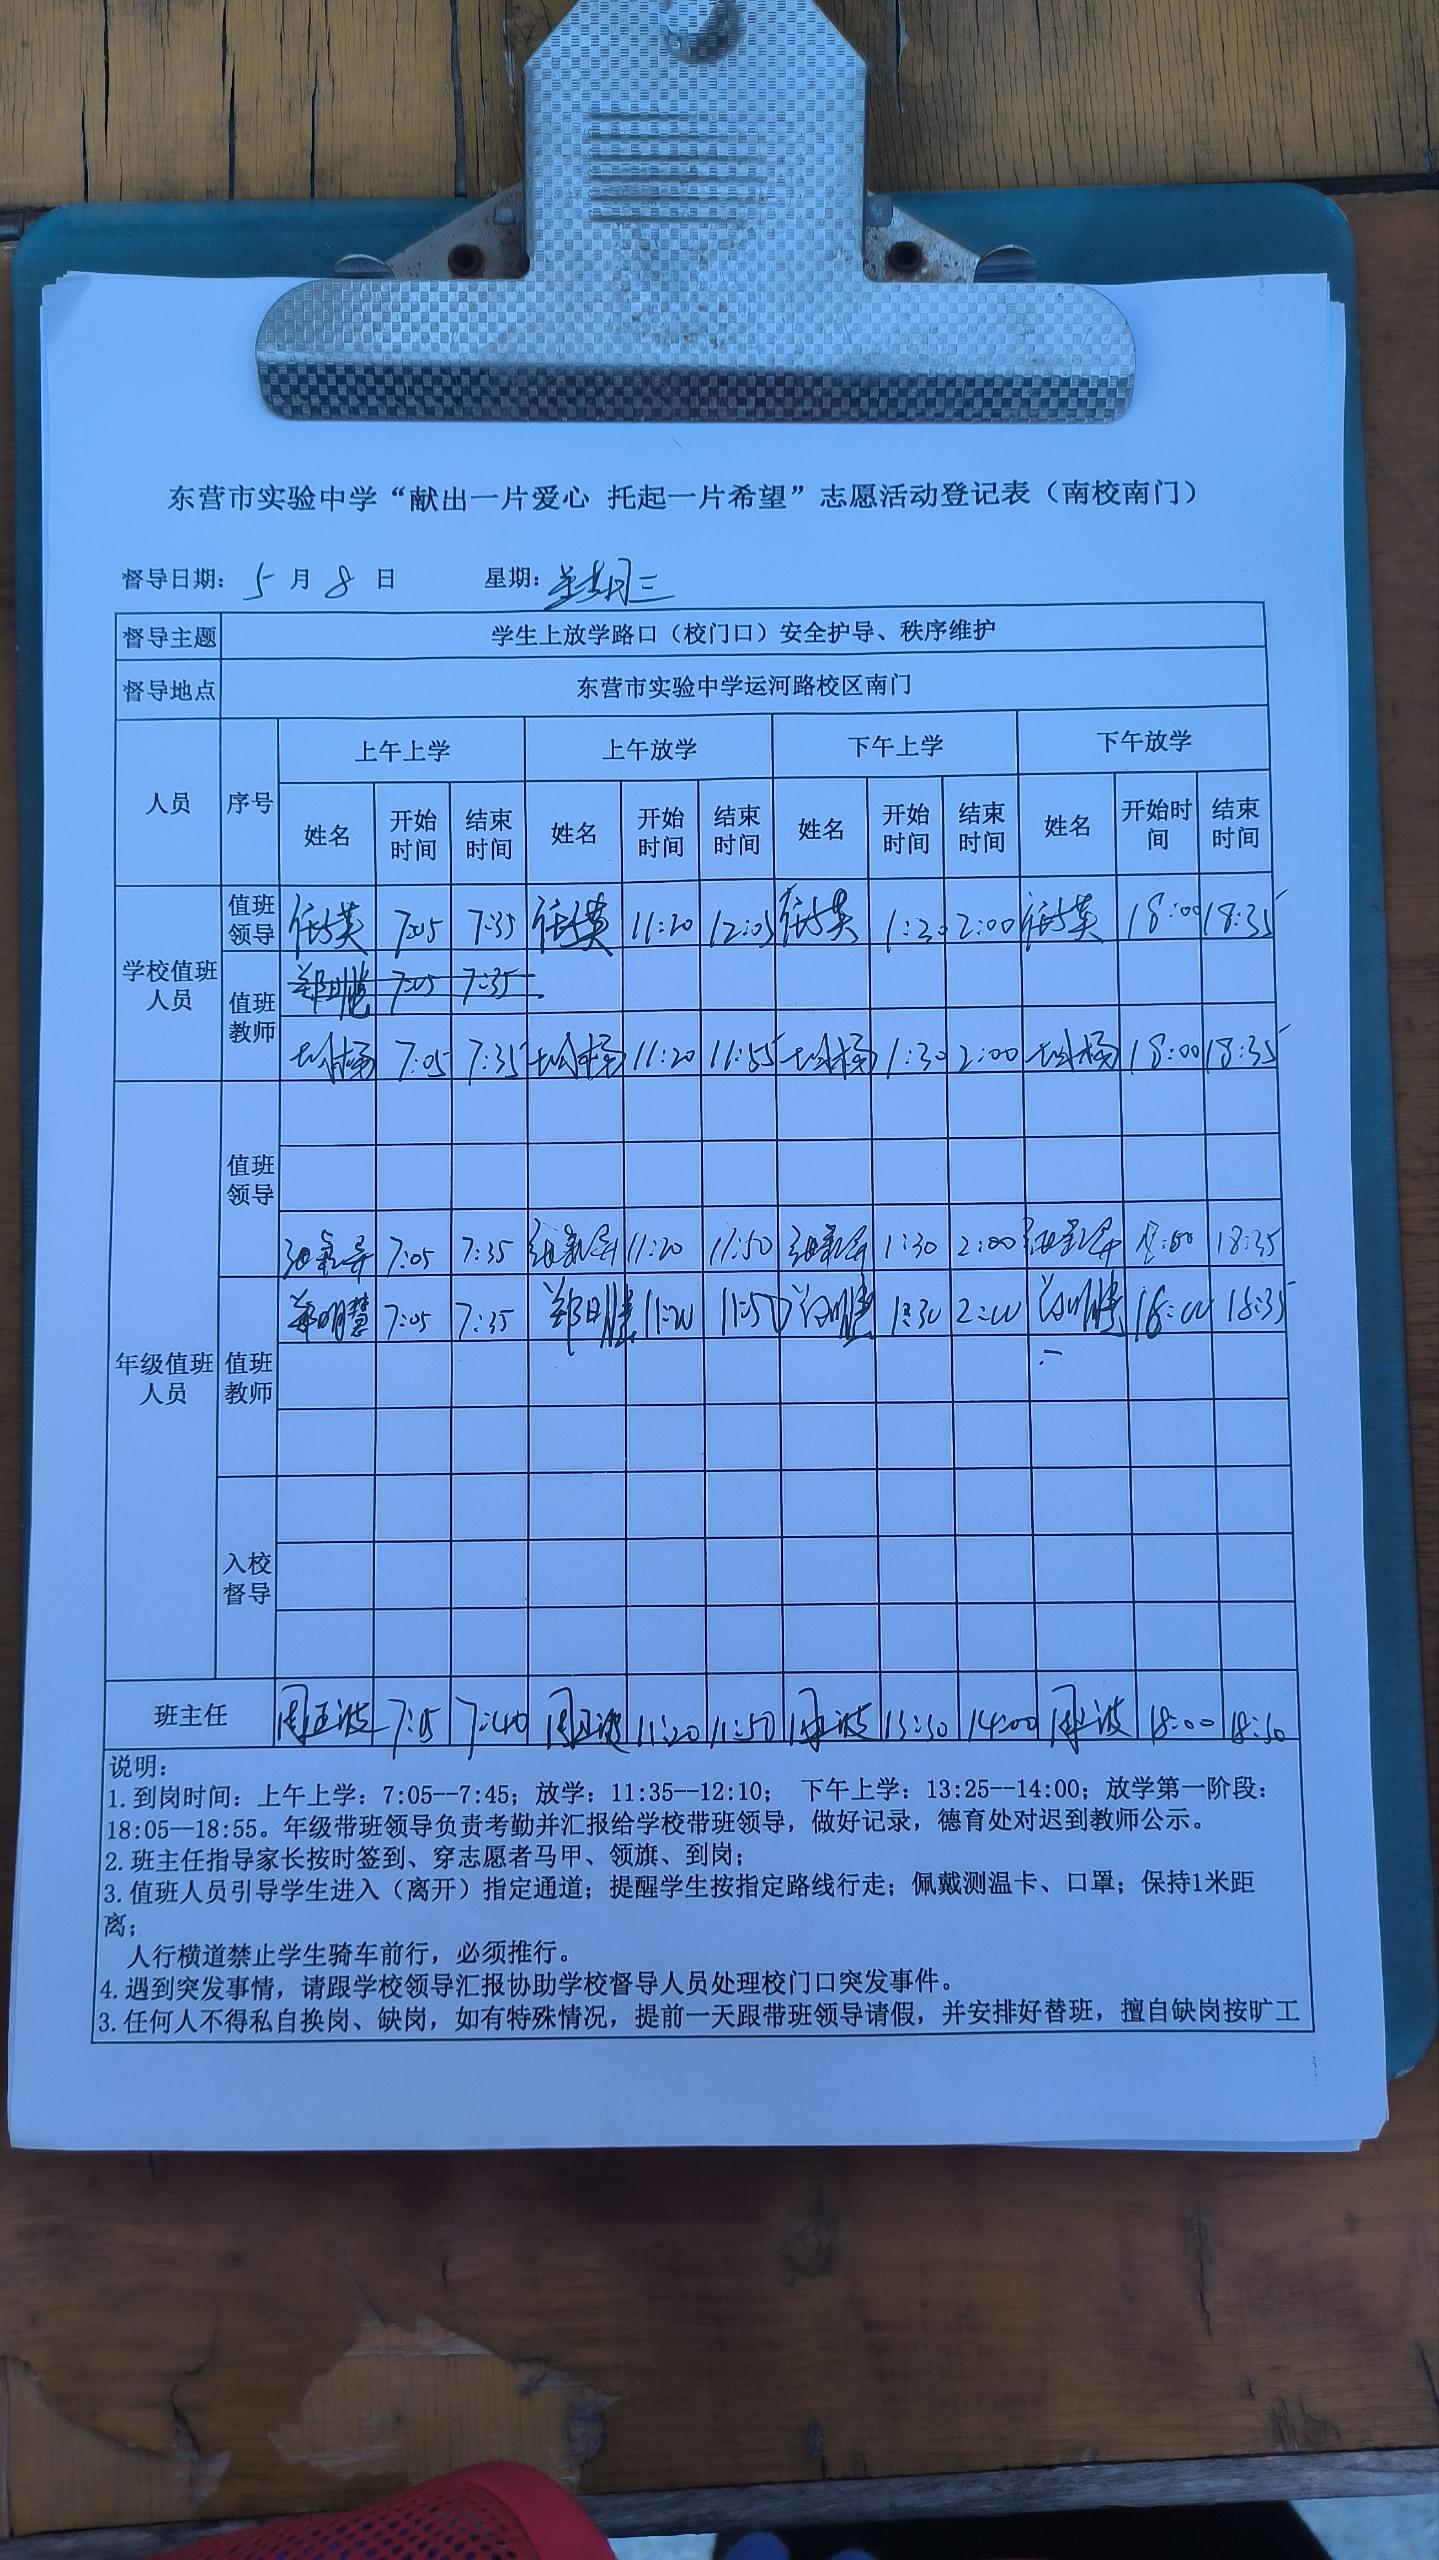 东营市实验中学“献出一片爱心 托起一片希望”志愿活动登记表（南校南门）
督导日期： 5 月 8 日 星期：星期三
督导主题 学生上放学路口（校门口）安全护导、秩序维护
督导地点 东营市实验中学运河路校区南门
人员 序号 上午上学 上午放学 下午上学 下午放学
姓名 开始时间 结束时间 姓名 开始时间 结束时间 姓名 开始时间 结束时间 姓名 开始时间 结束时间
学校值班人员 值班领导 7:05 7:35 11:20 12:05 1:30 2:00 18:00 18:35
值班教师 7:05 7:35
7:05 7:35 11:20 11:55 1:30 2:00 18:00 18:35
年级值班人员 值班领导
7:05 7:35 11:20 11:50 1:30 2:00 18:00 18:35
值班教师 郑明慧 7:05 7:35 郑明慧 11:20 11:50 郑明慧 1:30 2:00 郑明慧 18:00 18:35
入校督导
班主任 周正波 7:05 7:40 周正波 11:20 11:50 周正波 13:30 14:00 周正波 18:00 18:30
说明：
1.到岗时间：上午上学：7:05--7:45；放学：11:35--12:10； 下午上学：13:25--14:00；放学第一阶段：
18:05--18:55。年级带班领导负责考勤并汇报给学校带班领导，做好记录，德育处对迟到教师公示。
2.班主任指导家长按时签到、穿志愿者马甲、领旗、到岗；
3.值班人员引导学生进入（离开）指定通道；提醒学生按指定路线行走；佩戴测温卡、口罩；保持1米距
离；
人行横道禁止学生骑车前行，必须推行。
4.遇到突发事情，请跟学校领导汇报协助学校督导人员处理校门口突发事件。
3.任何人不得私自换岗、缺岗，如有特殊情况，提前一天跟带班领导请假，并安排好替班，擅自缺岗按旷工